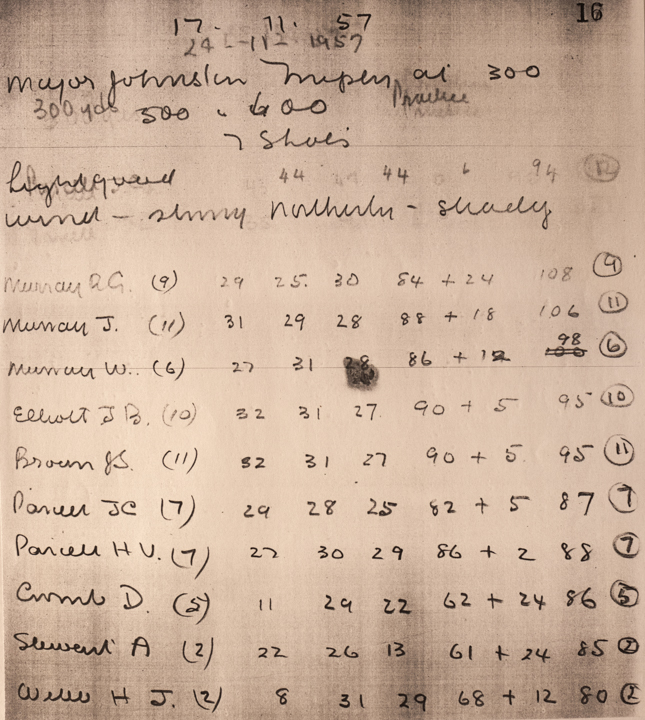 16
17. 11. 57
24 - 11 - 1957
Major Johnston Trophy at 300
300 yds 500 & 600 Practice
7 Shots
44 44 6 94 (12)
wind - strong northerly - shady
Murray R.G. (9) 29 25. 30 84 + 24 108 (9)
Murray J. (11) 31 29 28 88 + 18 106 (11)
Murray W. (6) 27 31 28 86 + 12 98 (6)
Elliott J B. (10) 32 31 27. 90 + 5 95 (10)
Brown JS. (11) 32 31 27 90 + 5. 95 (11)
Parcell JC (7) 29 28 25 82 + 5 87 (7)
Parcell H V. (7) 27 30 29 86 + 2 88 (7)
Cromb D. (5) 11 29 22 62 + 24 86 (5)
Stewart A (2) 22 26 13 61 + 24 85 (2)
H J. (2) 8 31 29 68 + 12 80 (2)